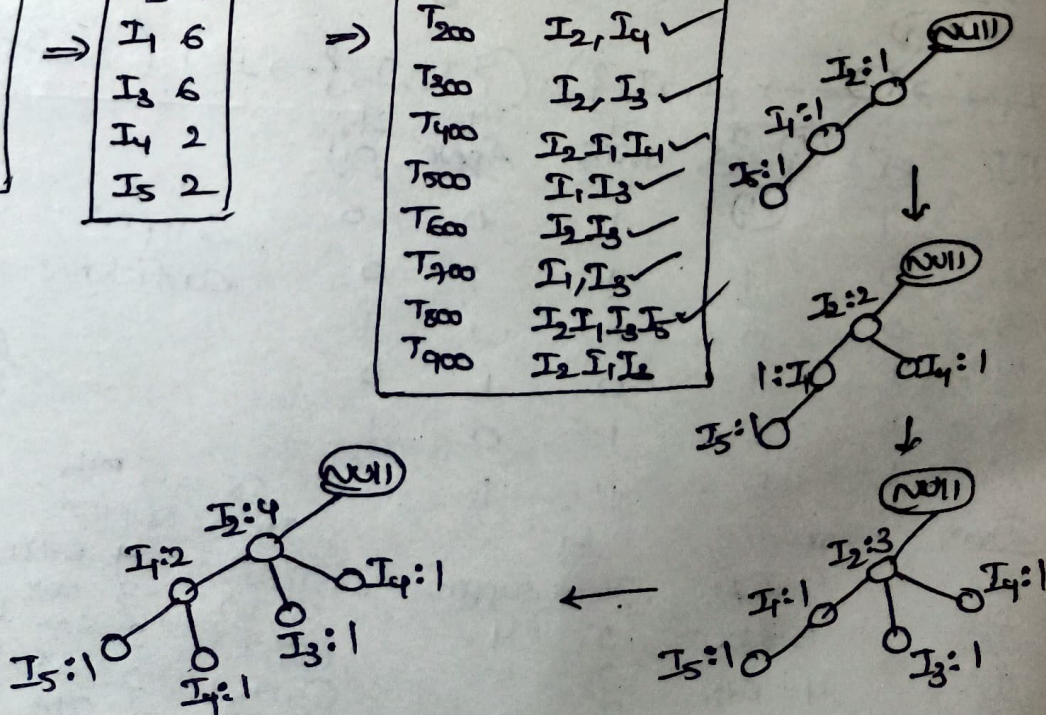 ⇒ I₁ 6
I₃ 6
I₄ 2
I₅ 2
⇒ T₂₀₀ I₂, I₄ ✓
T₃₀₀ I₂, I₃ ✓
T₄₀₀ I₂ I₁ I₄ ✓
T₅₀₀ I₁ I₃ ✓
T₆₀₀ I₂ I₃ ✓
T₇₀₀ I₁, I₃ ✓
T₈₀₀ I₂ I₁ I₃ I₅ ✓
T₉₀₀ I₂ I₁
Null
I₂:1
I₁:1
I₅:1
↓
Null
I₂:2
1:I₁
I₄:1
I₅:1
↓
Null
I₂:3
I₁:1
I₄:1
I₅:1
I₃:1
←
Null
I₂:4
I₁:2
I₄:1
I₃:1
I₅:1
I₄:1